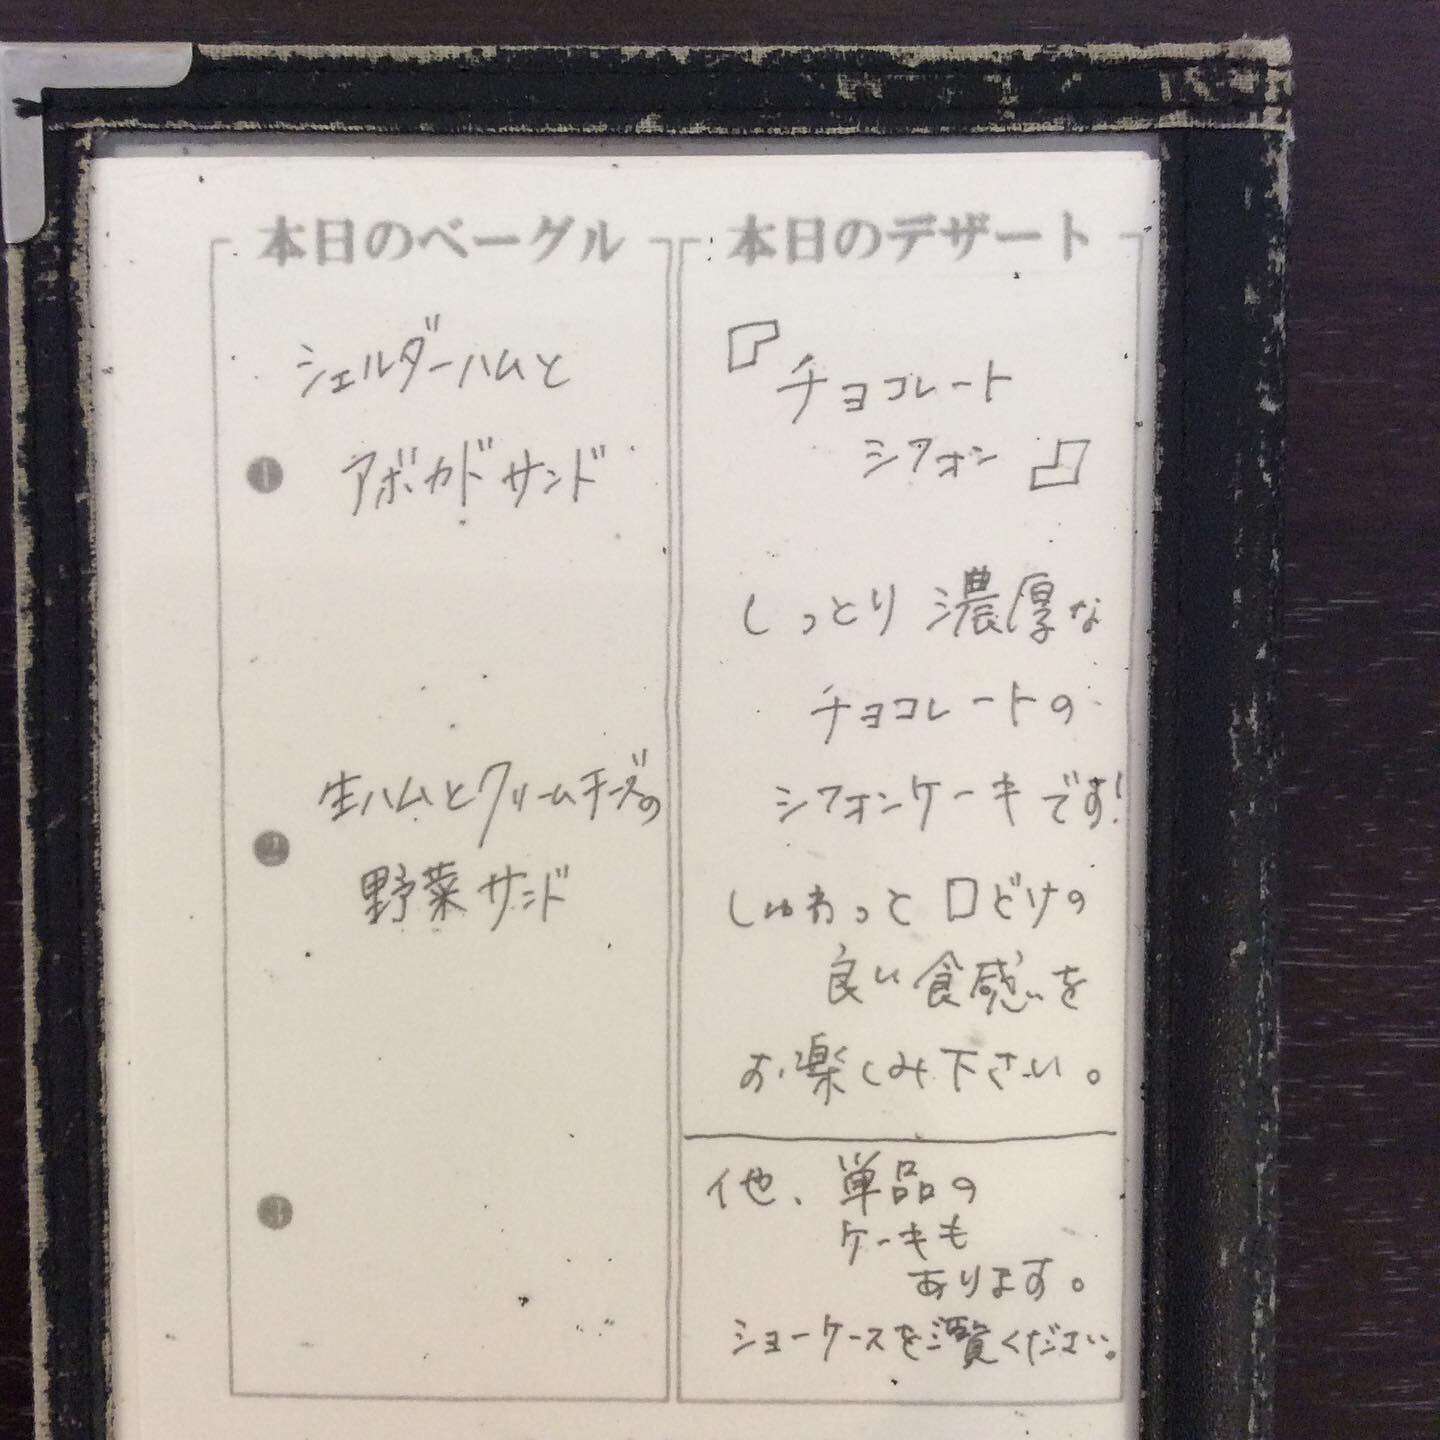 本日のベーグル
シェルダーハムと
❶ アボカドサンド
生ハムとクリームチーズの
❷ 野菜サンド
❸
本日のデザート
『チョコレート
シフォン』
しっとり濃厚な
チョコレートの
シフォンケーキです!
しゅわっと口どけの
良い食感を
お楽しみ下さい。
他、単品の
ケーキも
あります。
ショーケースをご覧ください。